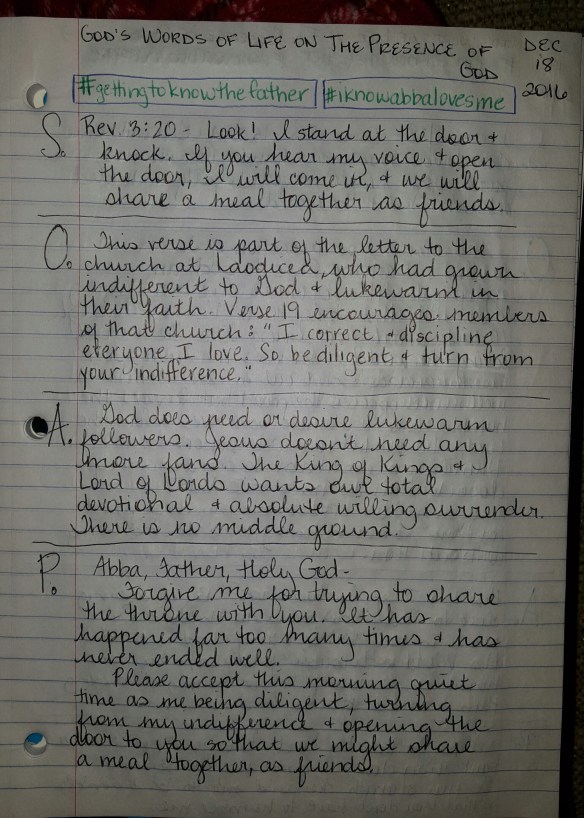 GOD'S WORDS OF LIFE ON THE PRESENCE OF GOD
DEC
18
2016
#gettingtoknowthefather #iknowabbalovesme
S. Rev. 3:20 - Look! I stand at the door +
knock. If you hear my voice + open
the door, I will come in, + we will
share a meal together as friends.
O. This verse is part of the letter to the
church at Laodicea, who had grown
indifferent to God + lukewarm in
their faith. Verse 19 encourages members
of that church: "I correct + discipline
everyone I love. So, be diligent + turn from
your indifference."
A. God does need or desire lukewarm
followers. Jesus doesn't need any
more fans. The King of Kings +
Lord of Lords wants our total
devotional + absolute willing surrender.
There is no middle ground.
P. Abba, Father, Holy God-
Forgive me for trying to share
the throne with you. It has
happened far too many times + has
never ended well.
Please accept this morning quiet
time as me being diligent, turning
from my indifference + opening the
door to you so that we might share
a meal together, as friends.